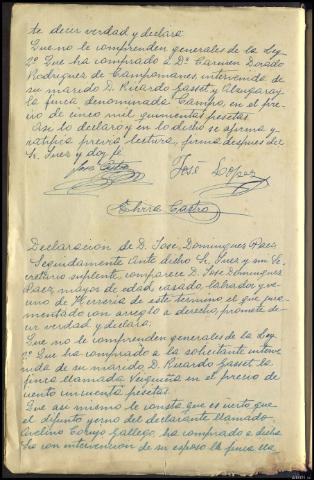 te decir verdad y declara:
Que no le comprenden generales de la Ley.
2º Que ha comprado a Dª Carmen Dorado
Rodriguez de Campomanes, intervenida de
su marido D. Ricardo Gasset y Alzugaray
la finca denominada Campo, en el pre-
cio de cinco mil quinientas pesetas.
Asi lo declaro y en lo dicho se afirma y
ratifica previa lectura, firma despues del
Sr. Juez y doy fé
José Castro José Lopez
Elvira Castro
Declaracion de D. Jose Dominguez Paez
Seguidamente ante dicho Sr. Juez y mi Se-
cretario suplente, comparece D. Jose Dominguez
Paez, mayor de edad, casado, labrador y ve-
cino de Herreria de este termino el que jura-
mentado con arreglo a derecho, promete de-
cir verdad y declara:
Que no le comprenden generales de la Ley
2º Que ha comprado a la solicitante interve-
nida de su marido D. Ricardo Gasset la
finca llamada en el precio de
ciento cincuenta pesetas.
Que asi mismo le consta que es cierto que
el difunto yerno del declarante llamado
Gallego, ha comprado a dicha
con intervencion de su esposo la finca lla